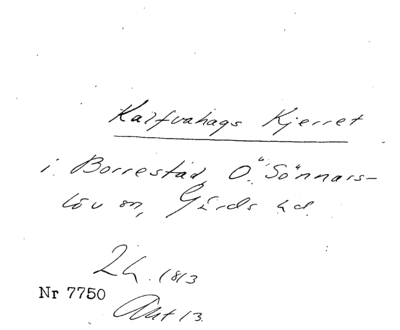 Kalfvahags Kjerret
i Borrestad, Ö. Sönnars-
löv sn, Gärds hd.
2 h. 1813
Nr 7750
Akt 13.